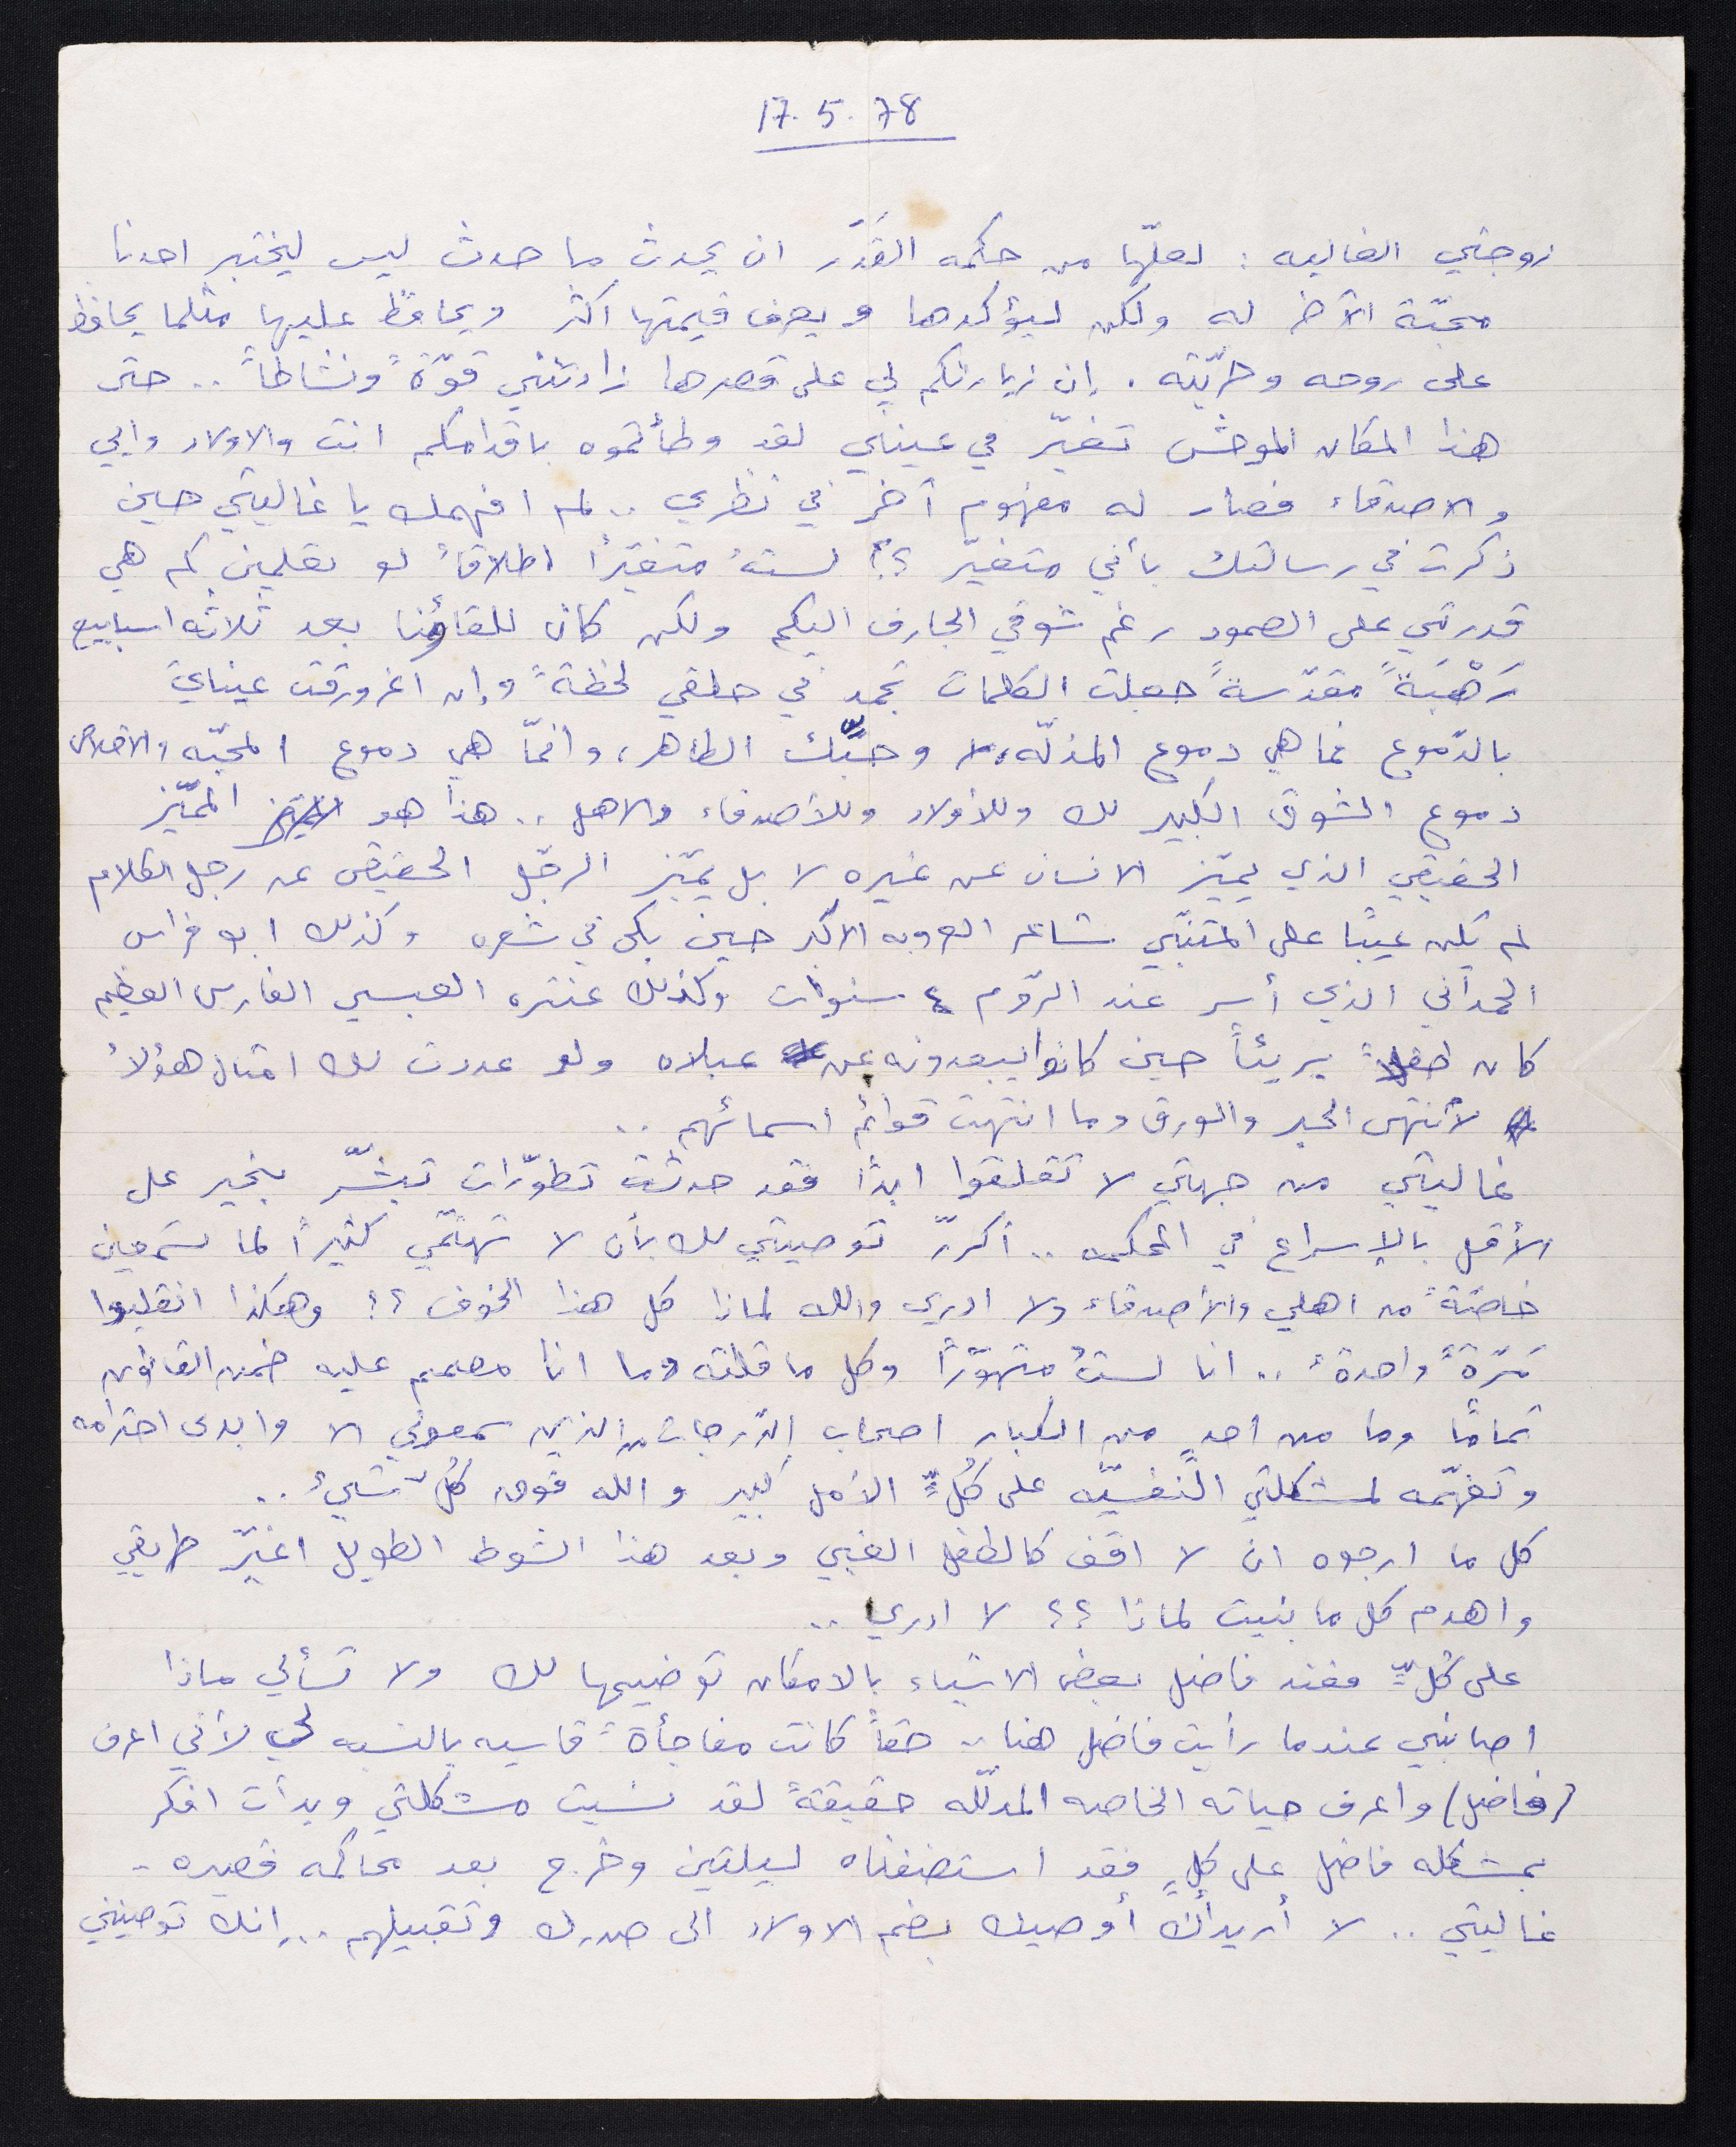 17.5.78
زوجتي الغاليه : لعلّها من حكمه القَدَر ان يحدث ما حدث ليس ليختبر احدنا
محبّة الآخر له ولكن ليؤكدها ويعرف قيمتها اكثر ويحافظ عليها مثلما يحافظ
على روحه وحرّيّته . إن زيارتكم لي على قصرها زادتني قوّةً ونشاطاً .. حتى
هذا المكان الموحش تغيّر في عيناي لقد وطأتموه باقدامكم انت والاولاد وابي
والاصدقاء فصار له مفهوم آخر في نظري .. لم افهمك يا غاليتي حين
ذكرت في رسالتك بأني متغيّر ؟! لستُ متغيّرًا اطلاقاً لو تعلمين كم هي
قدرتي على الصمود رغم شوقي الجارف اليكم ولكن كان للقائنا بعد ثلاثه اسابيع
رَهْبَةً مقدّسةً جعلت الكلمات تجمد في حلقي لحظةً وإن اغرورقت عيناي
بالدّموع فما هي دموع المذلّه، لا وحبّك الطاهر، وانمّا هي دموع المحبّه والاخلاص
دموع الشوق الكبير لك وللأولاد وللأصدقاء والاهل .. هذا هو المميّز
الحقيقي الذي يميّز الانسان عن غيره لا بل يميّز الرجّل الحقيقي عن رجل الكلام
لم يكن عيبًا على المتنبّي شاعر العروبه الاكبر حين بكى في شعره وكذلك ابو فراس
الحمداني الذي أسر عند الرّوم ٤ سنوات وكذلك عنتره العبسي الفارس العظيم
كان طفلاً بريئاً حين كانوا يبعدونه عن عبلاه ولو عددت لك امثال هؤلاءُ
لأنتهى الحبر والورق وما انتهت قوائم اسمائهم ..
غاليتي من جهتي لا تقلقوا ابدًا فقد حدثت تطوّرات تبشّر بخير على
الأقل بالإسراع في المحكمه .. أكررّ توصيتي لك بأن لا تهتمّي كثيراً لما تسمعين
خاصّةً من اهلي والأصدقاء ولا ادري والله لماذا كل هذا الخوف ؟؟ وهكذا انقلبوا
مَرّةً واحدةً .. انا لستُ متهوّرًا وكل ما قلته وما انا مصمم عليه ضمن القانون
تمامًا وما من احدٍ من الكبار اصحاب الدّرجات الذين سمعوني الا وابدى احترامه
وتفهّمه لمشكلتي النّفسيّه على كُلٍّ الأمل كبير والله فوق كُلّ شيءُ ..
كل ما ارجوه ان لا اقف كالطفل الغبي وبعد هذا الشوط الطويل اغيّر طريقي
واهدم كل ما بنيت لماذا ؟؟ لا ادري ..
على كُلٍّ فعند فاضل بعض الاشياء بالامكان توضيحها لك ولا تسألي ماذا
اصابني عندما رأيت فاضل هنا .. حقاً كانت مفاجأةً قاسيه بالنسبه لي لأني اعرف
(فاضل) واعرف حياته الخاصه المدلّله حقيقةً لقد نسيت مشكلتي وبدأت افكر
بمشكله فاضل على كلٍ فقد استضفناه ليلتين وخرج بعد محاكمه قصيره -
غاليتي .. لا أريد أن أوصيك بضم الاولاد الى صدرك وتقبيلهم .. إنك توصينني